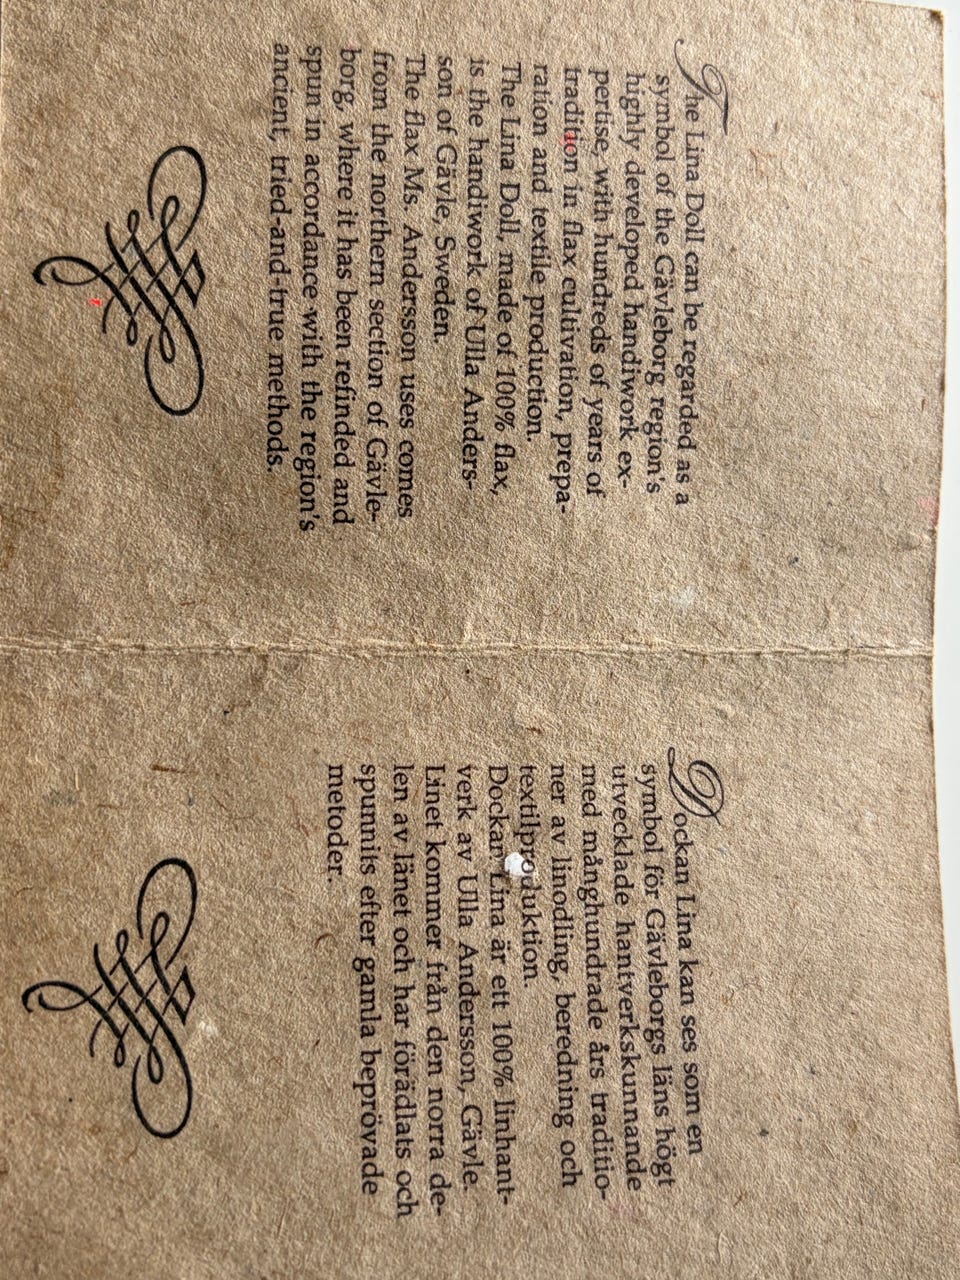 The Lina Doll can be regarded as a
symbol of the Gävleborg region's
highly developed handiwork ex-
pertise, with hundreds of years of
tradition in flax cultivation, prepa-
ration and textile production.
The Lina Doll, made of 100% flax,
is the handiwork of Ulla Anders-
son of Gävle, Sweden.
The flax Ms. Andersson uses comes
from the northern section of Gävle-
borg, where it has been refinded and
spun in accordance with the region's
ancient, tried-and-true methods.
Dockan Lina kan ses som en
symbol för Gävleborgs läns högt
utvecklade hantverkskunnande
med månghundrade års traditio-
ner av linodling, beredning och
textilproduktion.
Dockan Lina är ett 100% linhant-
verk av Ulla Andersson, Gävle.
Linet kommer från den norra de-
len av länet och har förädlats och
spunnits efter gamla beprövade
metoder.